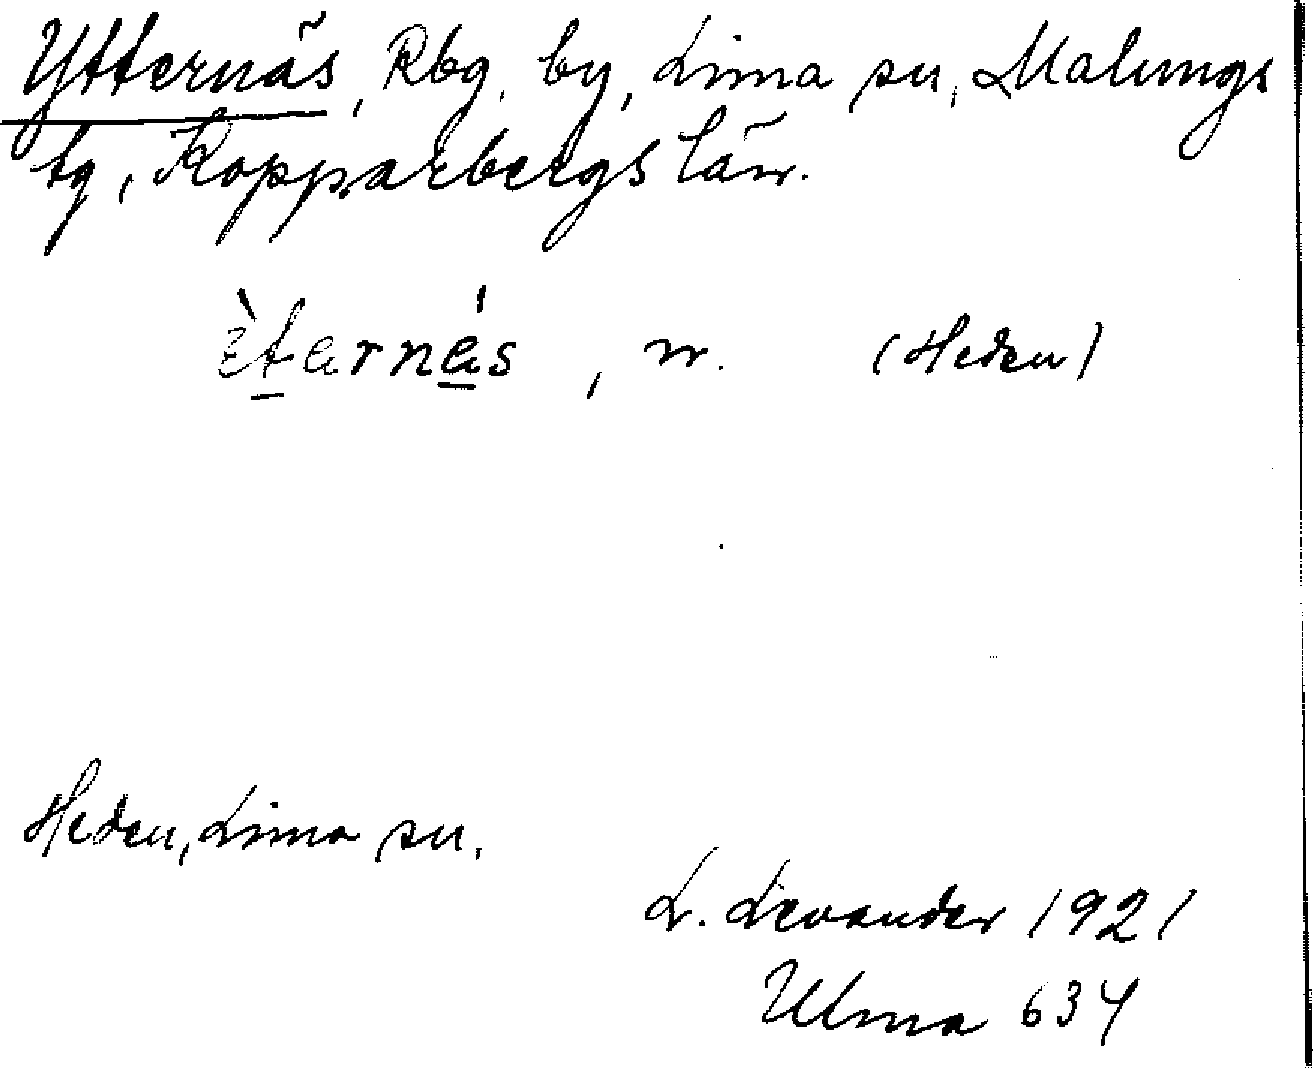 Ytternäs, Rbg, by, Lima sn, Malungs
tg, Kopparbergs län.
n. (Heden)
Heden, Lima sn.
L. Levander 1921
Ulma 634